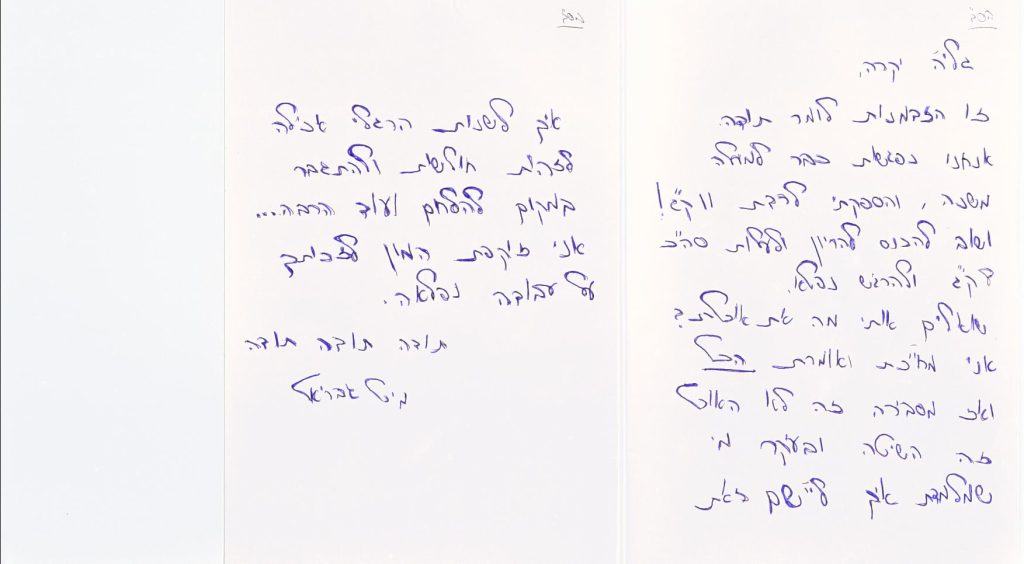 בס"ד
גליה יקרה,
זו הזדמנות לומר תודה.
אנחנו נפגשות כבר למעלה
משנה, והספקתי לרדת ק"ג!
ושוב להכנס להריון ולעלות סה"כ
ק"ג ולהרגיש נפלא.
שואלים אותי מה את אוכלת?
אני מחייכת ואומרת הכל
ואז מסבירה זה לא האוכל
זה השיטה ובעיקר מי
שמלמדת איך ליישם זאת
בס"ד
איך לשנות הרגלי אכילה
לזהות חולשות ולהתגבר
במקום להלחם ועוד הרבה...
אני זוקפת המון לזכותך
על עבודה נפלאה.
תודה תודה תודה
מיטל גבריאל